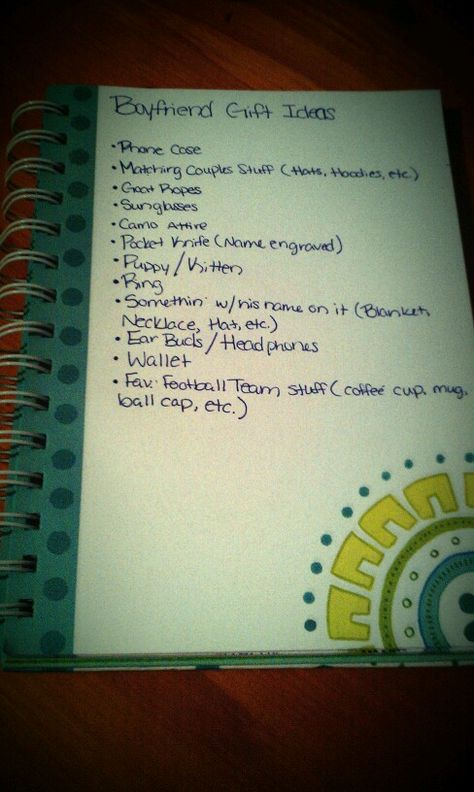 Boyfriend Gift Ideas
• Phone Case
• Matching Couples Stuff (Hats, Hoodies, etc.)
• Goat Ropes
• Sunglasses
• Camo Attire
• Pocket Knife (Name engraved)
• Puppy/Kitten
• Ring
• Somethin' w/his name on it (Blanket,
Necklace, Hat, etc.)
• Ear Buds/Headphones
• Wallet
• Fav. Football Team Stuff (coffee cup, mug,
ball cap, etc.)